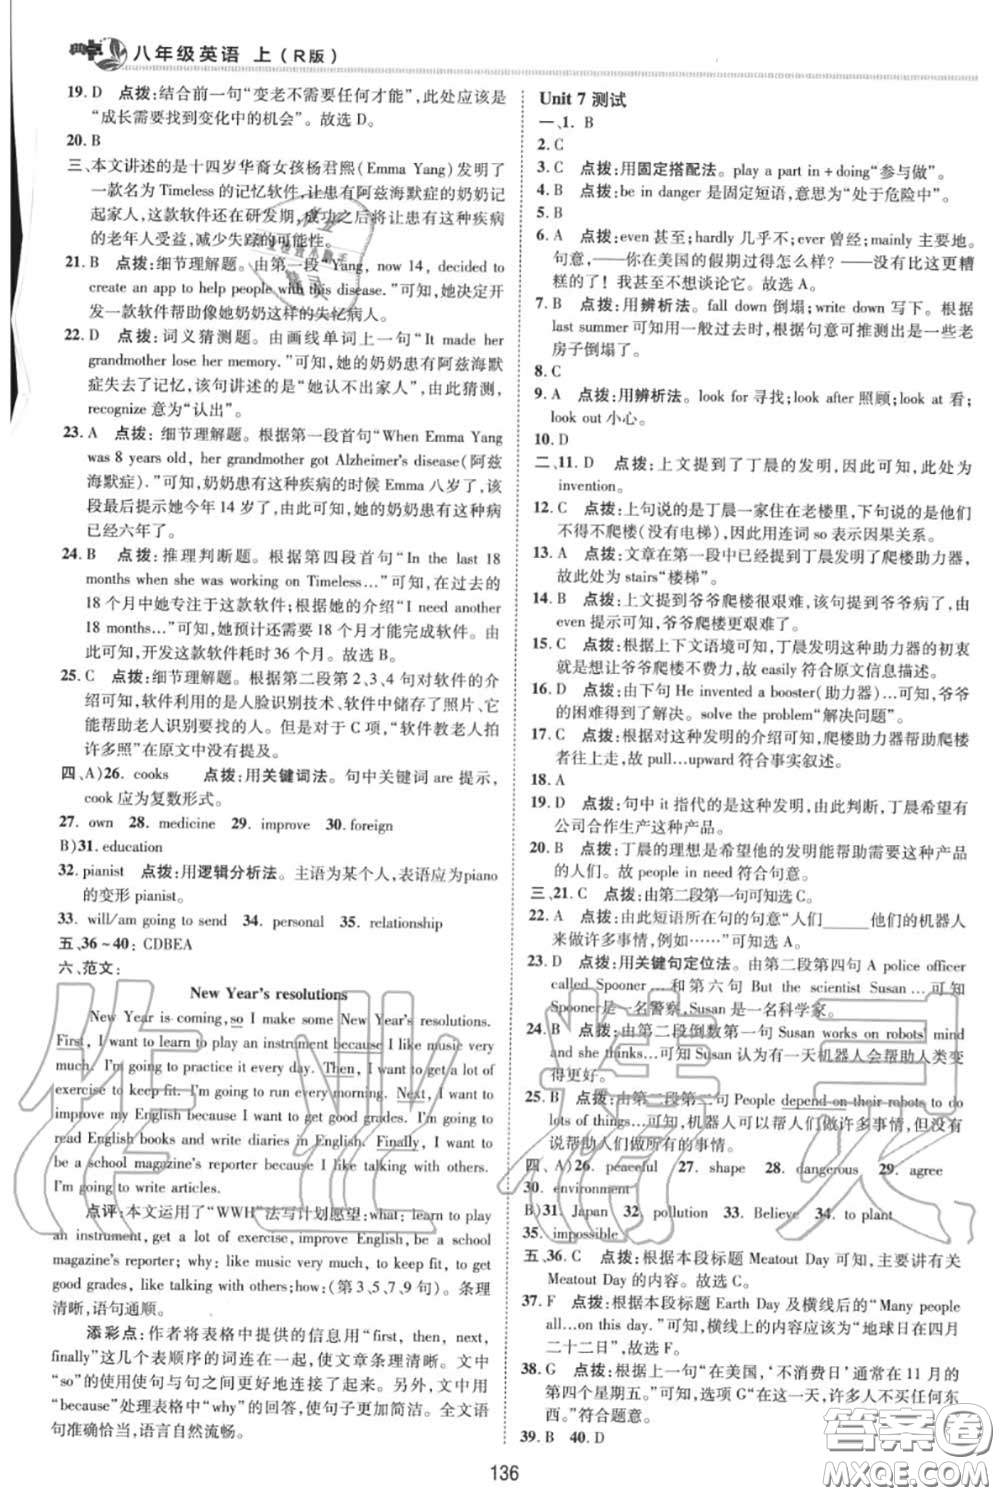 典点 八年级英语 上（R版）
19. D 点拨：结合前一句“变老不需要任何才能”，此处应该是
“成长需要找到变化中的机会”。故选 D。
20. B
三、本文讲述的是十四岁华裔女孩杨君熙（Emma Yang）发明了
一款名为 Timeless 的记忆软件，让患有阿兹海默症的奶奶记
起家人，这款软件还在研发期，成功之后将让患有这种疾病
的老年人受益，减少失踪的可能性。
21. B 点拨：细节理解题。由第一段“Yang, now 14, decided to
create an app to help people with this disease.”可知，她决定开
发一款软件帮助像她奶奶这样的失忆病人。
22. D 点拨：词义猜测题。由画线单词上一句“It made her
grandmother lose her memory.”可知，她的奶奶患有阿兹海默
症失去了记忆，该句讲述的是“她认不出家人”，由此猜测，
recognize 意为“认出”。
23. A 点拨：细节理解题。根据第一段首句“When Emma Yang
was 8 years old, her grandmother got Alzheimer's disease（阿兹
海默症）.”可知，奶奶患有这种疾病的时候 Emma 八岁了，该
段最后提示她今年 14 岁了，由此可知，她的奶奶患有这种病
已经六年了。
24. B 点拨：推理判断题。根据第四段首句“In the last 18
months when she was working on Timeless…”可知，在过去的
18 个月中她专注于这款软件；根据她的介绍“I need another
18 months…”可知，她预计还需要 18 个月才能完成软件。由
此可知，开发这款软件耗时 36 个月。故选 B。
25. C 点拨：细节理解题。根据第二段第 2、3、4 句对软件的介
绍可知，软件利用的是人脸识别技术、软件中储存了照片、它
能帮助老人识别要找的人。但是对于 C 项，“软件教老人拍
许多照”在原文中没有提及。
四、A）26. cooks 点拨：用关键词法。句中关键词 are 提示，
cook 应为复数形式。
27. own 28. medicine 29. improve 30. foreign
B）31. education
32. pianist 点拨：用逻辑分析法。主语为某个人，表语应为piano
的变形 pianist。
33. will/am going to send 34. personal 35. relationship
五、36～40：CDBEA
六、范文：
New Year's resolutions
New Year is coming, so I make some New Year's resolutions.
First, I want to learn to play an instrument because I like music very
much. I'm going to practice it every day. Then, I want to get a lot of
exercise to keep fit. I'm going to run every morning. Next, I want to
improve my English because I want to get good grades. I'm going to
read English books and write diaries in English. Finally, I want to
be a school magazine's reporter because I like talking with others.
I'm going to write articles.
点评：本文运用了“WWH”法写计划愿望：what：learn to play
an instrument, get a lot of exercise, improve English, be a school
magazine's reporter；why：like music very much, keep fit, get
good grades, like talking with others；how：（第 3,5,7,9 句）。条理
清晰，语句通顺。
添彩点：作者将表格中提供的信息用“first, then, next,
finally”这几个表顺序的词连在一起，使文章条理清晰。文中
“so”的使用使句与句之间更好地连接了起来。另外，文中用
“because”处理表格中“why”的回答，使句子更加简洁。全文语
句准确恰当，语言自然流畅。
Unit 7 测试
一、1. B
2. C
3. C 点拨：用固定搭配法。play a part in + doing“参与做”。
4. B 点拨：be in danger 是固定短语，意思为“处于危险中”。
5. B
6. A 点拨：even 甚至；hardly 几乎不；ever 曾经；mainly 主要地。
句意，——你在美国的假期过得怎么样？——没有比这更糟
糕的了！我甚至不想谈论它。故选 A。
7. B 点拨：用辨析法。fall down 倒塌；write down 写下。根据
last summer 可知用一般过去时，根据句意可推测出是一些老
房子倒塌了。
8. C
9. A 点拨：用辨析法。look for 寻找；look after 照顾；look at 看；
look out 小心。
10. D
二、11. D 点拨：上文提到了丁晨的发明，因此可知，此处为
invention。
12. C 点拨：上句说的是丁晨一家住在老楼里，下句说的是他们
不得不爬楼（没有电梯），因此用连词 so 表示因果关系。
13. A 点拨：文章在第一段中已经提到丁晨发明了爬楼助力器，
故此处为 stairs“楼梯”。
14. B 点拨：上文提到爷爷爬楼很艰难，该句提到爷爷病了，由
even 提示可知，爷爷爬楼更艰难了。
15. C 点拨：根据上下文语境可知，丁晨发明这种助力器的初衷
就是想让爷爷爬楼不费力，故 easily 符合原文信息描述。
16. D 点拨：由下句 He invented a booster（助力器）…可知，爷爷
的困难得到了解决。solve the problem“解决问题”。
17. C 点拨：根据对这种发明的介绍可知，爬楼助力器能帮爬楼
者往上走，故 pull…upward 符合事实叙述。
18. A
19. D 点拨：句中 it 指代的是这种发明，由此判断，丁晨希望有
公司合作生产这种产品。
20. B 点拨：丁晨的理想是希望他的发明能帮助需要这种产品
的人们。故 people in need 符合句意。
三、21. C 点拨：由第二段第一句可知选 C。
22. A 点拨：由此短语所在句的句意“人们____他们的机器人
来做许多事情，例如……”可知选 A。
23. D 点拨：用关键句定位法。由第二段第四句 A police officer
called Spooner…和第六句 But the scientist Susan…可知
Spooner是一名警察，Susan 是一名科学家。
24. B 点拨：由第二段倒数第一句 Susan works on robots' mind
and she thinks…可知 Susan 认为有一天机器人会帮助人类变
得更好。
25. B 点拨：由第二段第二句 People depend on their robots to do
lots of things…可知，机器人可以帮人们做许多事情，但没有
说帮助人们做所有的事情。
四、A）26. peaceful 27. shape 28. dangerous 29. agree
30. environment
B）31. Japan 32. pollution 33. Believe 34. to plant
35. impossible
五、36. C 点拨：根据本段标题 Meatout Day 可知，主要讲有关
Meatout Day 的内容。故选 C。
37. F 点拨：根据本段标题 Earth Day 及横线后的“Many people
all…on this day.”可知，横线上的内容为“地球日在四月
二十二日”，故选 F。
38. G 点拨：根据上一句“在美国，‘不消费日’通常在 11 月的
第四个星期五。”可知，选项 G“在这一天，许多人不买任何东
西。”符合题意。
39. B 40. D
136
作业精灵
答案圈
MXQE.COM